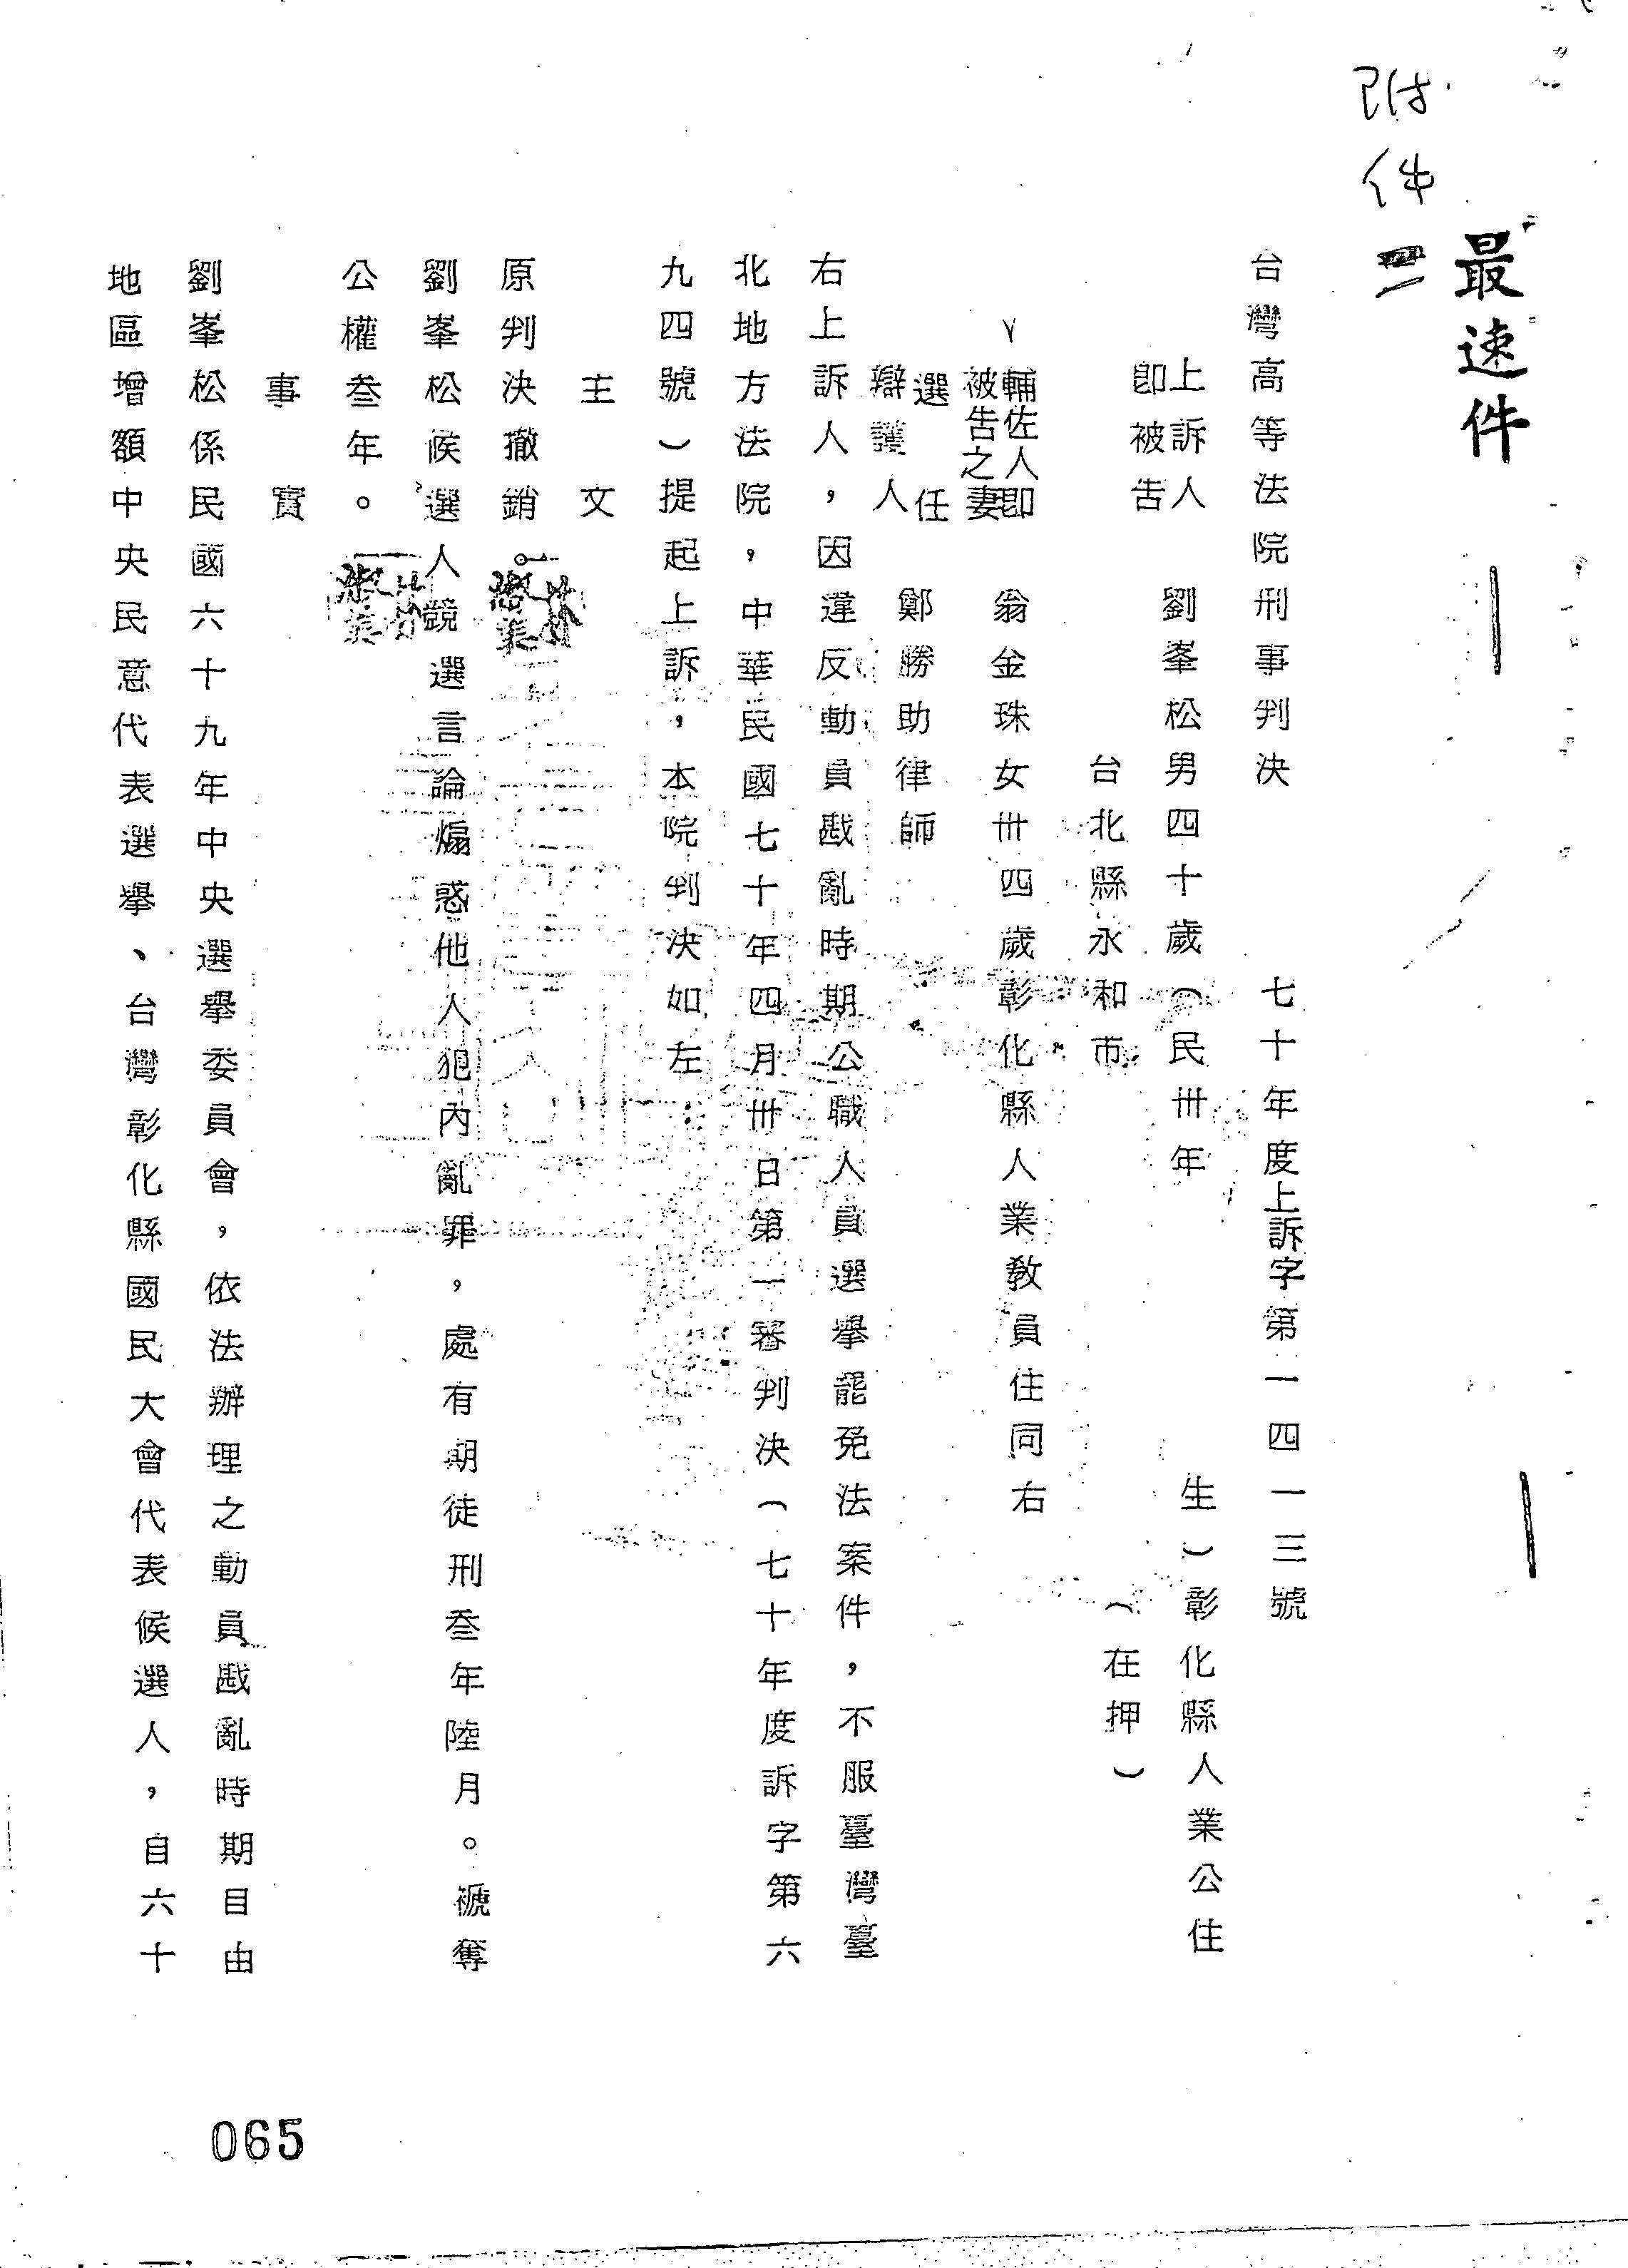 附件二
最速件
台灣高等法院刑事判決
七十年度上訴字第一四一三號
上訴人
即被告
劉峯松男四十歲(民卅年
生)彰化縣人業公住
台北縣永和市
(在押)
輔佐人即
被告之妻
翁金珠女卅四歲彰化縣人業教員住同右
選任
辯護人
鄭勝助律師
右上訴人,因違反動員戡亂時期公職人員選舉罷免法案件,不服臺灣臺
北地方法院,中華民國七十年四月卅日第一審判決(七十年度訴字第六
九四號)提起上訴,本院判決如左:
主文
原判決撤銷。
劉峯松候選人競選言論煽惑他人犯內亂罪,處有期徒刑叁年陸月。褫奪
公權叁年。
事實
劉峯松係民國六十九年中央選舉委員會,依法辦理之動員戡亂時期自由
地區增額中央民意代表選舉、台灣彰化縣國民大會代表候選人,自六十
065